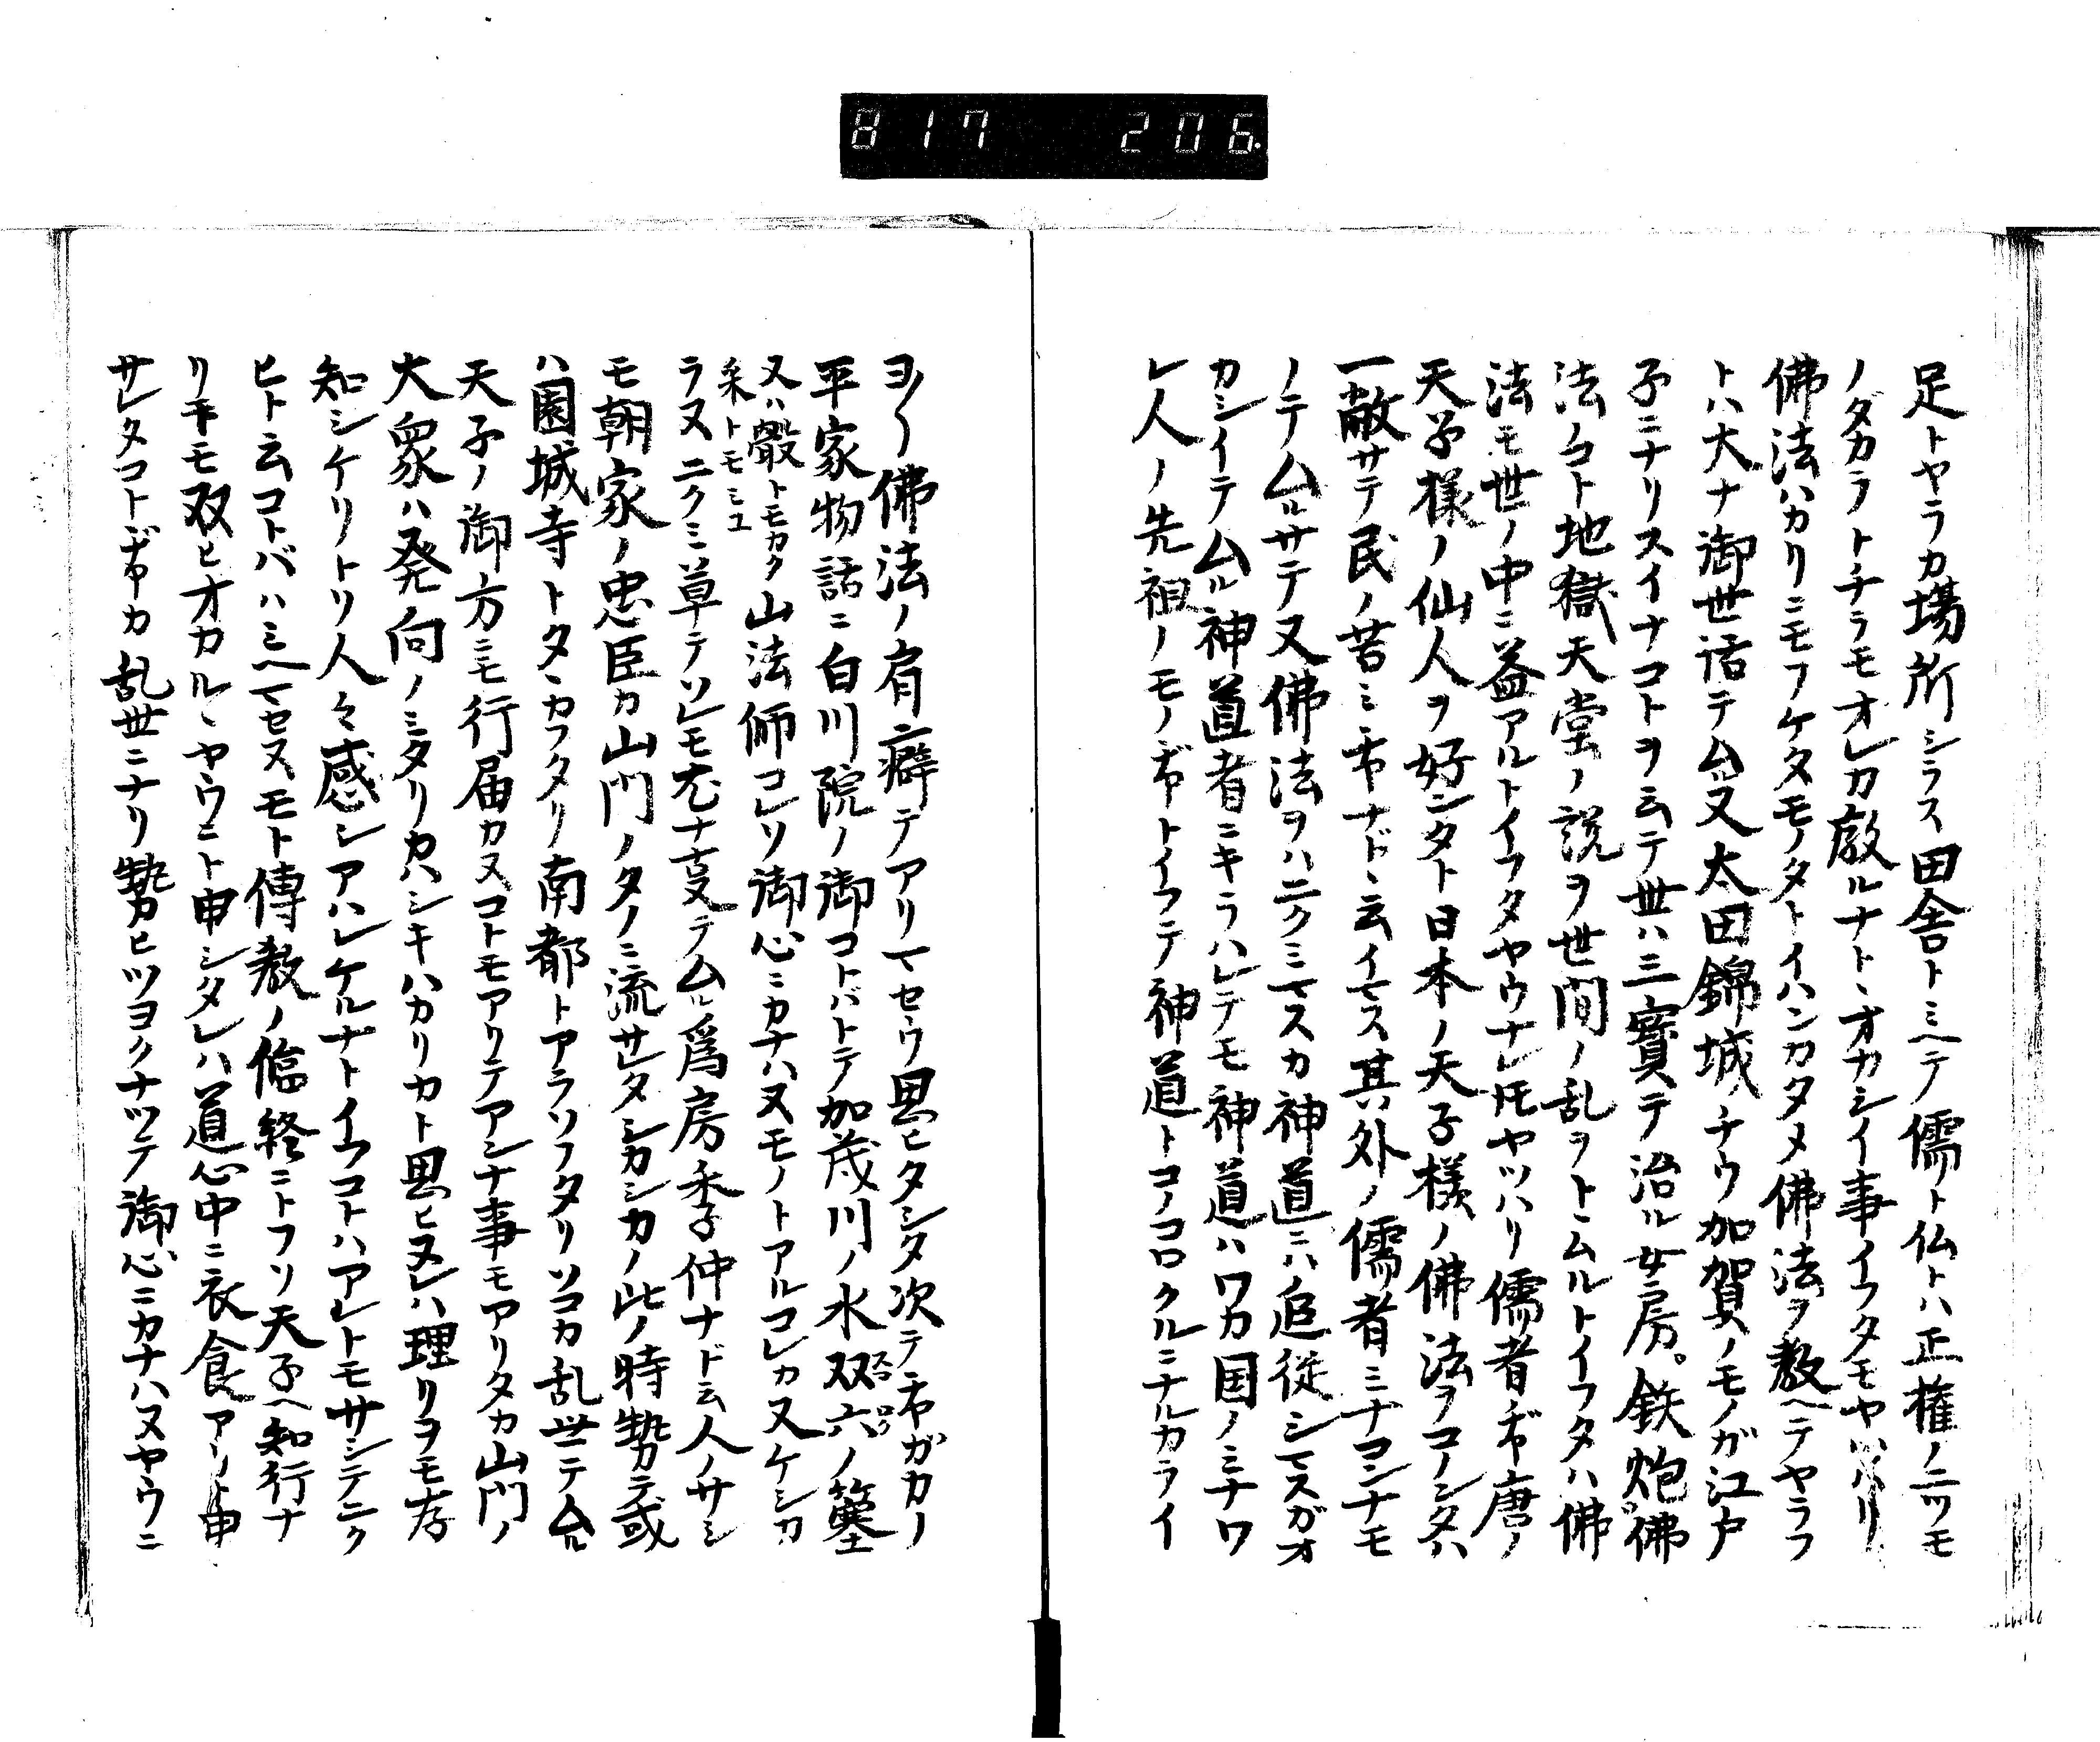 817 206
足トヤラカ場所シラス田舎トミヘテ儒ト仏トハ正権ノ二ツモ
ノダカラトチラモオレカ教ルナトヽオカシイ事イフタモヤツハリ
佛法ハカリニモフケタモノタトイハンカタメ佛法ヲ教ヘテヤラフ
トハ大ナ御世話テム又太田錦城ノチウ加賀ノモノガ江戸
子ニナリスイナコトヲ云テ世ハ三寶テ治ル女房。鉄炮。佛
法ノコト地獄天堂ノ説ヲ世間ノ乱ヲトムルトイフタハ佛
法モ世ノ中ニ益アルトイフタヤウナレ𪜈ヤツハリ儒者ヂヤ唐ノ
天子様ノ仙人ヲ好ンタト日本ノ天子様ノ佛法ヲコノンタハ
一敵サテ民ノ苦ミヂヤナドヽ云イマス其外ノ儒者ミナコンナモ
ノテムルサテ又佛法ヲハニクミマスカ神道ニハ追従シマスガオ
カシイテムル神道者ニキラハレテモ神道ハワカ国ノミチワ
レ人ノ先祖ノモノヂヤトイフテ神道トコノコロクルミナルカライ
ヨ〳〵佛法ノ肩癖テアリマセウ思ヒタシタ次テヂヤガカノ
平家物語ニ白川院ノ御コトバトテ加茂川ノ水双六ノ簺
又ハ骰トモカク山法師コレソ御心ニカナハヌモノトアルコレカ又ケシカ
采トモミユ
ラヌニクミ草テソレモ尤ナ㕝テムル爲房季仲ナド云人ノサシ
モ朝家ノ忠臣カ山門ノタメニ流サレタシカシカノ此ノ時勢テ或
ハ園城寺トタヽカフタリ南都トアラソフタリソコカ乱世テムル
天子ノ御方ニモ行届カヌコトモアリテアシナ事モアリタカ山門ノ
大衆ハ発向ノミタリカハシキハカリカト思ヒヌレハ理リヲモ存
知シケリトソ人々感シアハレケルナトイフコトハアレトモサシテニク
ヒト云コトバハミヘマセヌモト傳教ノ臨終ニトフソ天子ヘ知行ナ
リ下モ双ヒオカルヽヤウニト申シタレハ道心中ニ衣食アリト申
サレタコトヂヤカ乱世ニナリ勢カヒツヨクナツテ御心ニカナハヌヤウニ